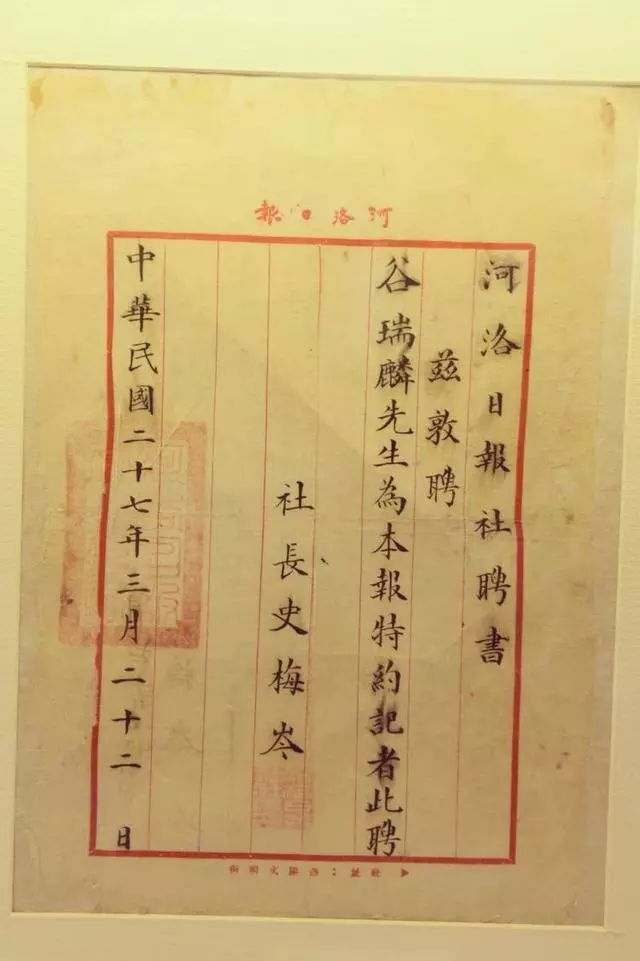 河洛日報
河洛日報社聘書
茲敦聘
谷瑞麟先生為本報特約記者此聘
社長史梅岑
中華民國二十七年三月二十二日
社址：洛陽文明街